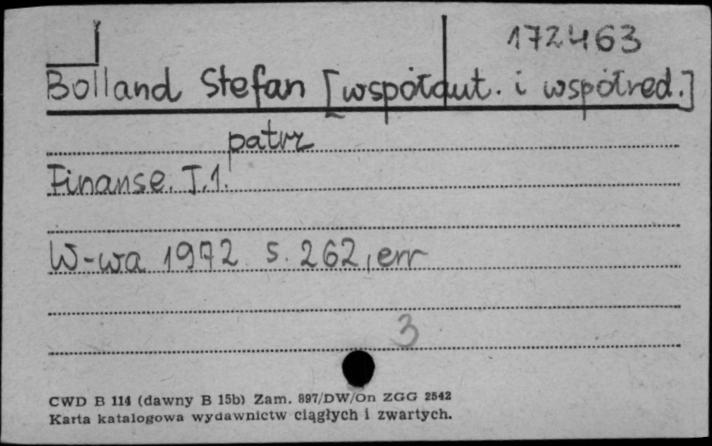 172463
Bolland Stefan [współaut. i współred.]
patrz
Finanse. T.1.
W-wa 1972 s. 262, err
3
CWD B 114 (dawny B 15b) Zam. 897/DW/On ZGG 2542
Karta katalogowa wydawnictw ciągłych i zwartych.